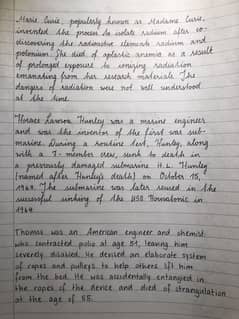 Marie Curie, popularly known as Madame Curie,
invented the process to isolate radium after co-
discovering the radioactive elements radium and
polonium. She died of aplastic anemia as a result
of prolonged exposure to ionizing radiation
emanating from her research materials. The
dangers of radiation were not well understood
at the time.
Horace Lawson Hunley was a marine engineer
and was the inventor of the first war sub-
marine. During a routine test, Hunley, along
with a 7-member crew, sunk to death in
a previously damaged submarine H.L. Hunley
(named after Hunley's death) on October 15,
The submarine was later reused in the
successful sinking of the USS Housatonic in
Thomas was an American engineer and chemist
who contracted polio at age 51, leaving him
severely disabled. He devised an elaborate system
of ropes and pulleys to help others lift him
from the bed. He was accidentally entangled in
the ropes of the device and died of strangulation
at the age of 55.